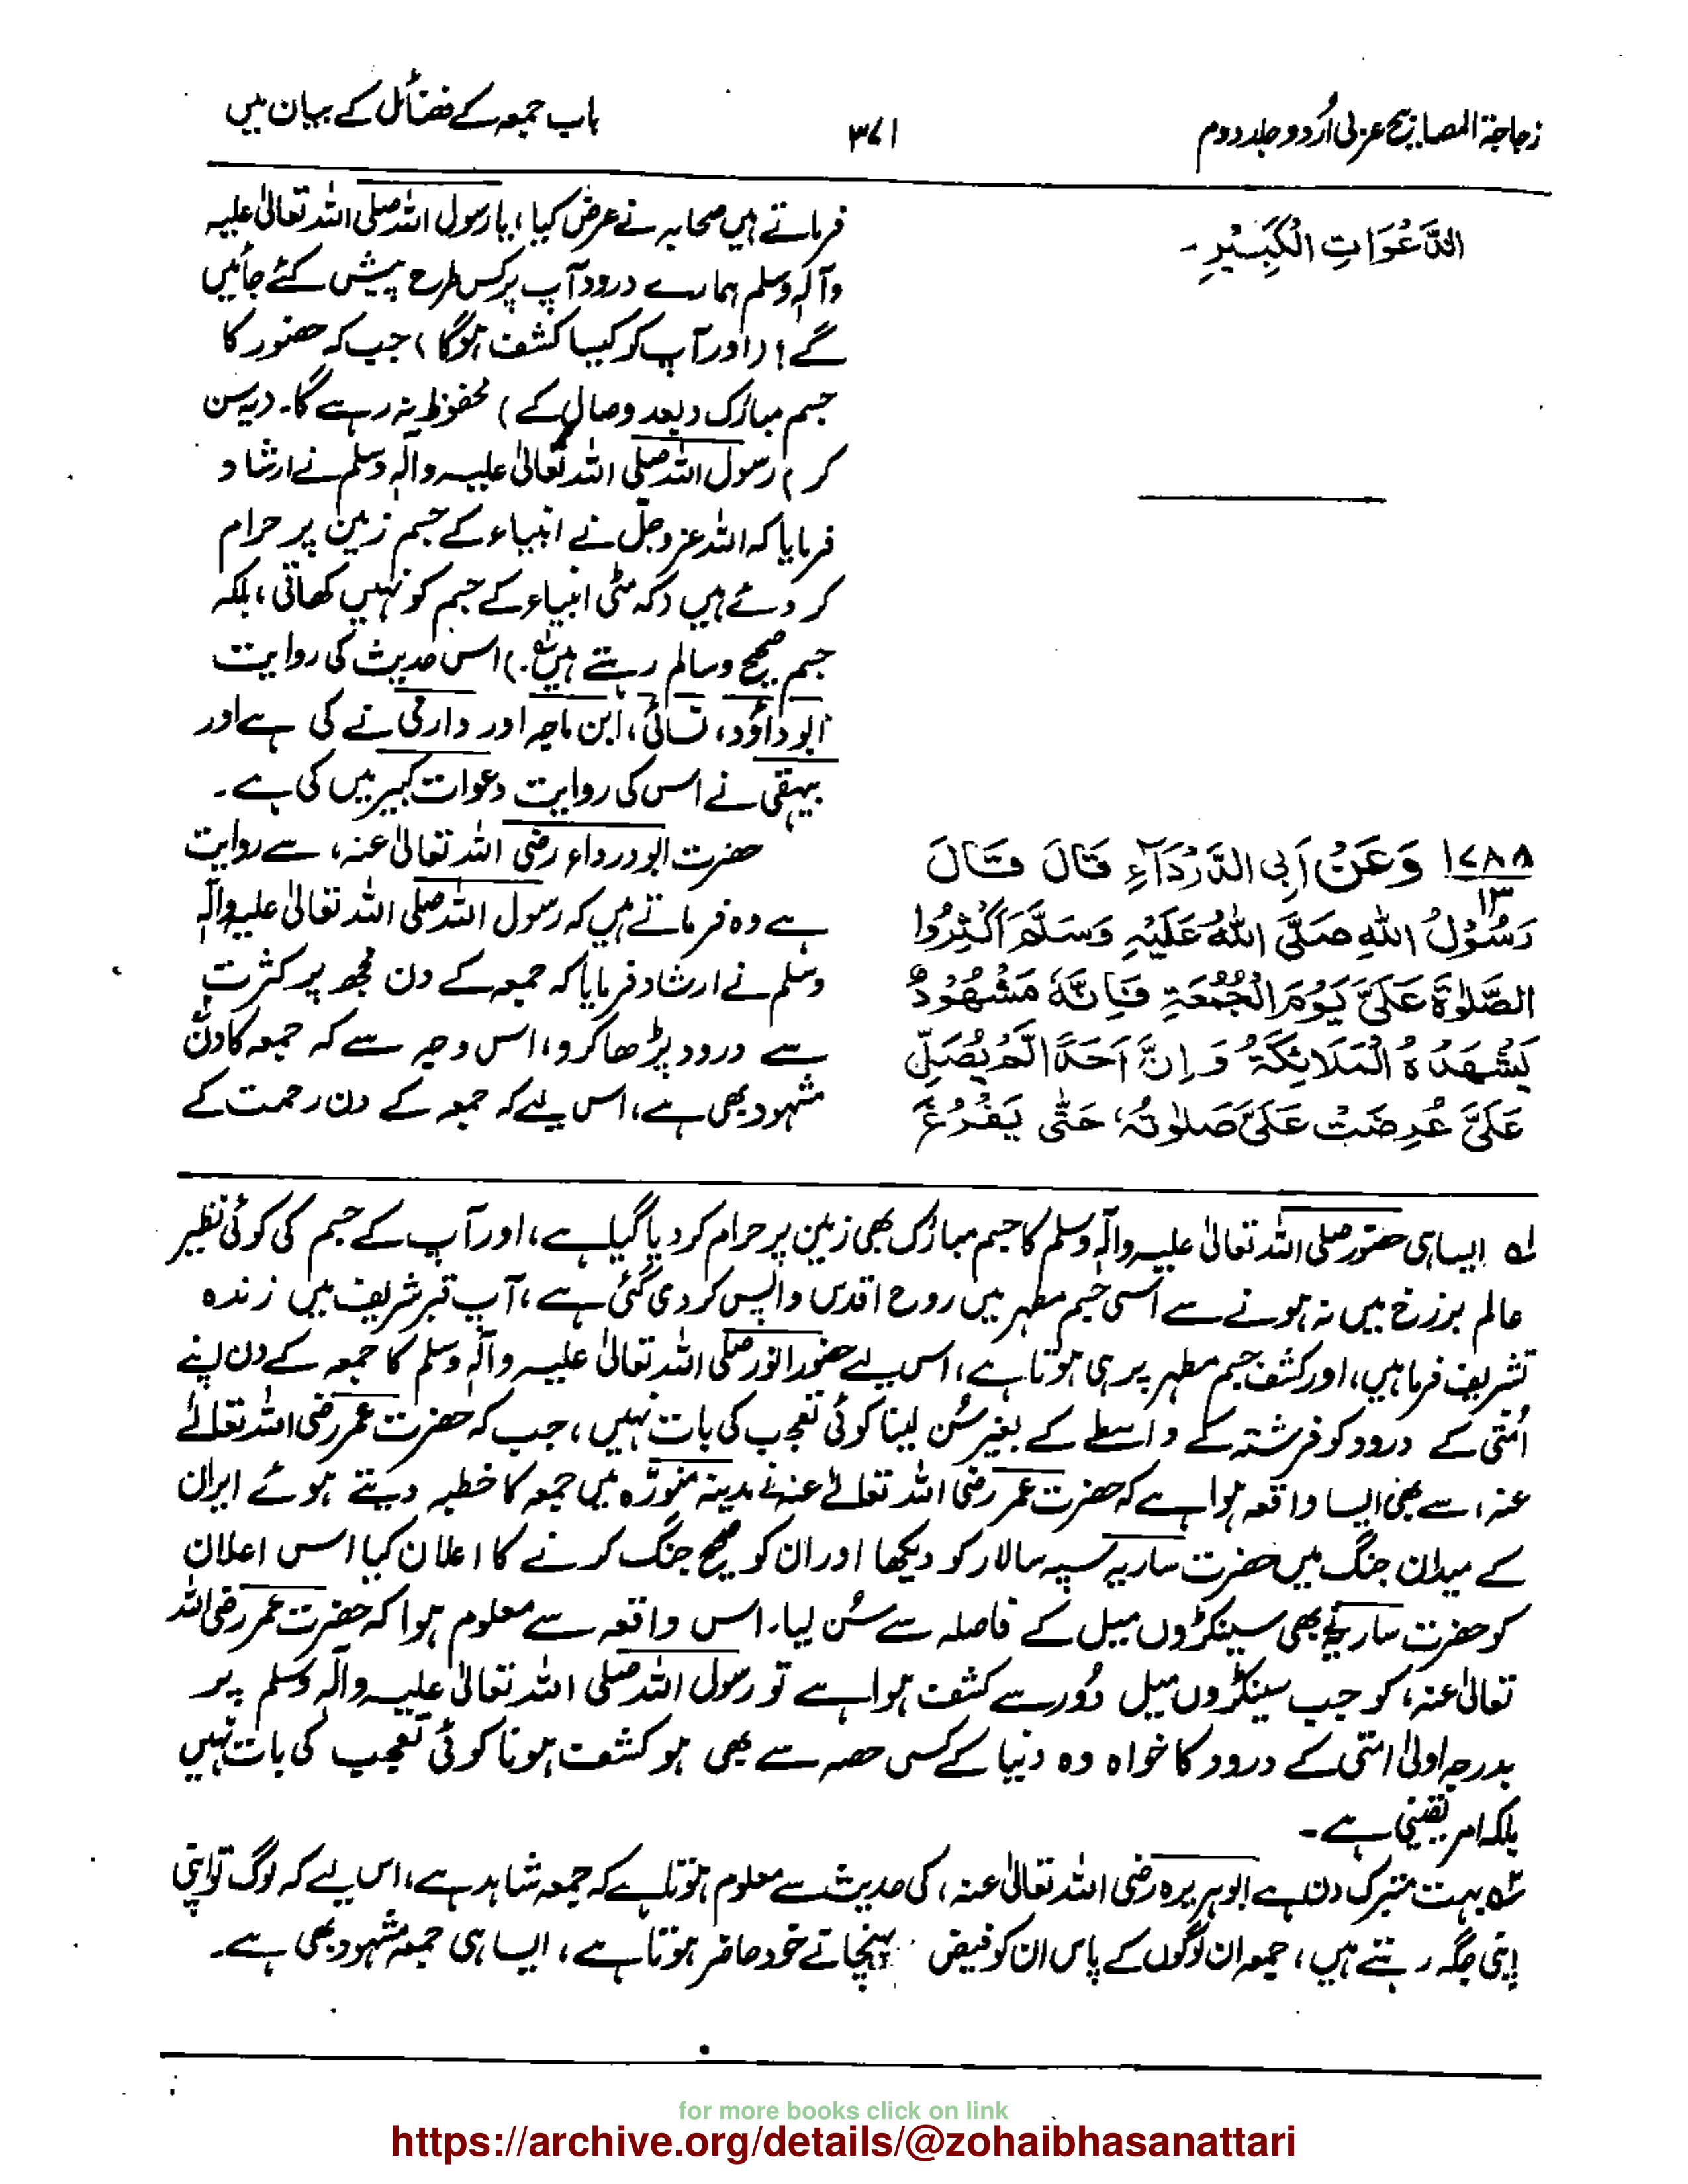 زجاجۃ المصابیح عربی اُردو جلد دوم
۳۷۱
باب جمعہ کے فضائل کے بیان میں
الدَّعْوَاتِ الْکَبِیْرِ ۔
فرماتے ہیں صحابہ نے عرض کیا، یا رسول اللہ صلی اللہ تعالیٰ علیہ
وآلہٖ وسلم ہمارے درود آپ پر کس طرح پیش کئے جائیں
گے؟ (اور آپ کو کیسا کشف ہوگا) جب کہ حضور کا
جسم مبارک (بعد وصال کے) محفوظ نہ رہے گا۔ (یہ سن
کر) رسول اللہ صلی اللہ تعالیٰ علیہ والہٖ وسلم نے ارشاد
فرمایا کہ اللہ عزوجل نے انبیاء کے جسم زمین پر حرام
کر دئے ہیں (کہ مٹی انبیاء کے جسم کو نہیں کھاتی، بلکہ
جسم صحیح وسالم رہتے ہیں۔) اس حدیث کی روایت
ابوداؤد، نسائی، ابن ماجہ اور دارمی نے کی ہے اور
بیہقی نے اس کی روایت دعوات کبیر میں کی ہے۔
۱۷۸۸
۱۳
وَعَنْ اَبِی الدَّرْدَآءِ قَالَ قَالَ
رَسُوْلُ اللّٰهِ صَلَّی اللّٰهُ عَلَیْہِ وَسَلَّمَ اَکْثِرُوا
الصَّلٰوۃَ عَلَیَّ یَوْمَ الْجُمُعَۃِ فَاِنَّہٗ مَشْهُوْدٌ
یَشْهَدُہُ الْمَلَائِکَۃُ وَ اِنَّ اَحَدًا لَمْ یُصَلِّ
عَلَیَّ عُرِضَتْ عَلَیَّ صَلٰوتُہٗ حَتّٰی یَفْرُغَ
حضرت ابو درداء رضی اللہ تعالیٰ عنہ، سے روایت
ہے وہ فرماتے ہیں کہ رسول اللہ صلی اللہ تعالیٰ علیہ وآلہٖ
وسلم نے ارشاد فرمایا کہ جمعہ کے دن مجھ پر کثرت
سے درود پڑھا کرو، اس وجہ سے کہ جمعہ کا دن
مشہود بھی ہے، اس لیے کہ جمعہ کے دن رحمت کے
لہ ایسا ہی حضور صلی اللہ تعالیٰ علیہ وآلہٖ وسلم کا جسم مبارک بھی زمین پر حرام کر دیا گیا ہے، اور آپ کے جسم کی کوئی نظیر
عالم برزخ میں نہ ہونے سے اسی جسم مطہر میں روح اقدس واپس کر دی گئی ہے، آپ قبر شریف میں زندہ
تشریف فرما ہیں، اور کشف جسم مطہر پر ہی ہوتا ہے، اس لیے حضور انور صلی اللہ تعالیٰ علیہ وآلہٖ وسلم کا جمعہ کے دن اپنے
اُمتی کے درود کو فرشتہ کے واسطے کے بغیر سُن لینا کوئی تعجب کی بات نہیں، جب کہ حضرت عمر رضی اللہ تعالےٰ
عنہ، سے بھی ایسا واقعہ ہوا ہے کہ حضرت عمر رضی اللہ تعالےٰ عنہ نے مدینہ منورّہ میں جمعہ کا خطبہ دیتے ہوئے ایران
کے میدان جنگ میں حضرت ساریہ سپہ سالار کو دیکھا اور ان کو صحیح جنگ کرنے کا اعلان کیا اس اعلان
کو حضرت ساریہ نے بھی سینکڑوں میل کے فاصلہ سے سُن لیا۔ اس واقعہ سے معلوم ہوا کہ حضرت عمر رضی اللہ
تعالیٰ عنہ، کو جب سینکڑوں میل دُور سے کشف ہوا ہے تو رسول اللہ صلی اللہ تعالیٰ علیہ وآلہٖ وسلم پر
بدرجہ اولیٰ امتی کے درود کا خواہ وہ دنیا کے کسی حصہ سے بھی ہو کشف ہونا کوئی تعجب کی بات نہیں
بلکہ امر یقینی ہے۔
۲ہ بہت متبرک دن ہے ابوہریرہ رضی اللہ تعالیٰ عنہ، کی حدیث سے معلوم ہوتا ہے کہ جمعہ شاہد ہے، اس لیے کہ لوگ تو اپنی
اپنی جگہ رہتے ہیں، جمعہ ان لوگوں کے پاس ان کو فیض پہنچانے خود حاضر ہوتا ہے، ایسا ہی جمعہ مشہود بھی ہے۔
for more books click on link
https://archive.org/details/@zohaibhasanattari